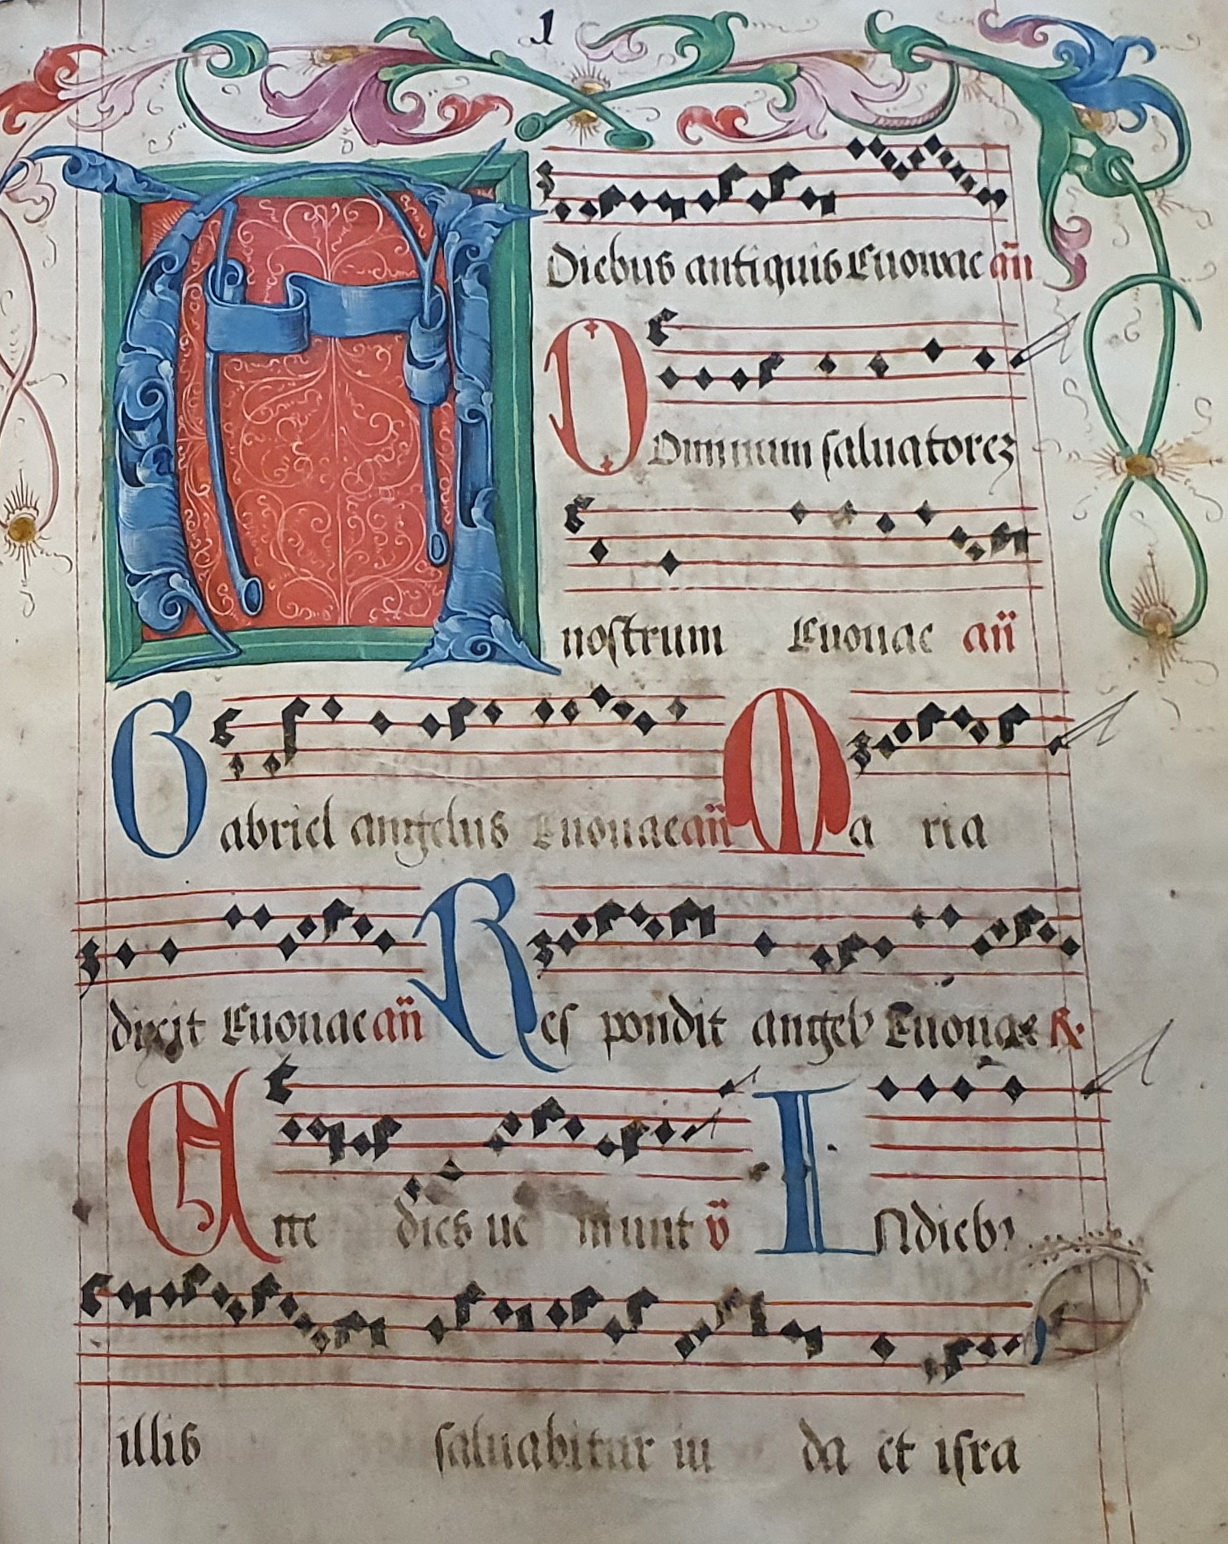 1
A Diebus antiquis Euouae añ
Dominum saluatorez
nostrum Euouae añ
Gabriel angelus Euouae añ Ma ria
dixit Euouae añ Res pondit angelꝰ Euouae R.
Ecce dies ue niunt v̈ In diebꝰ
illis saluabitur iu da et isra